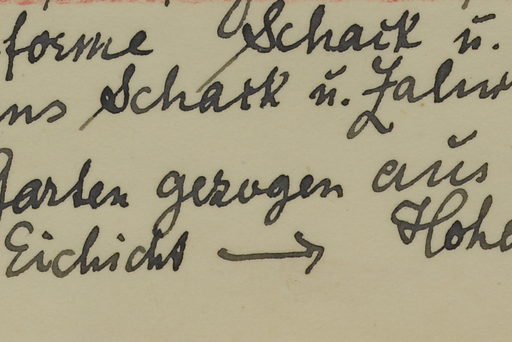 forme Schack u.
ns Schack u. Zalw
Garten gezogen aus
Eichicht → Hohe